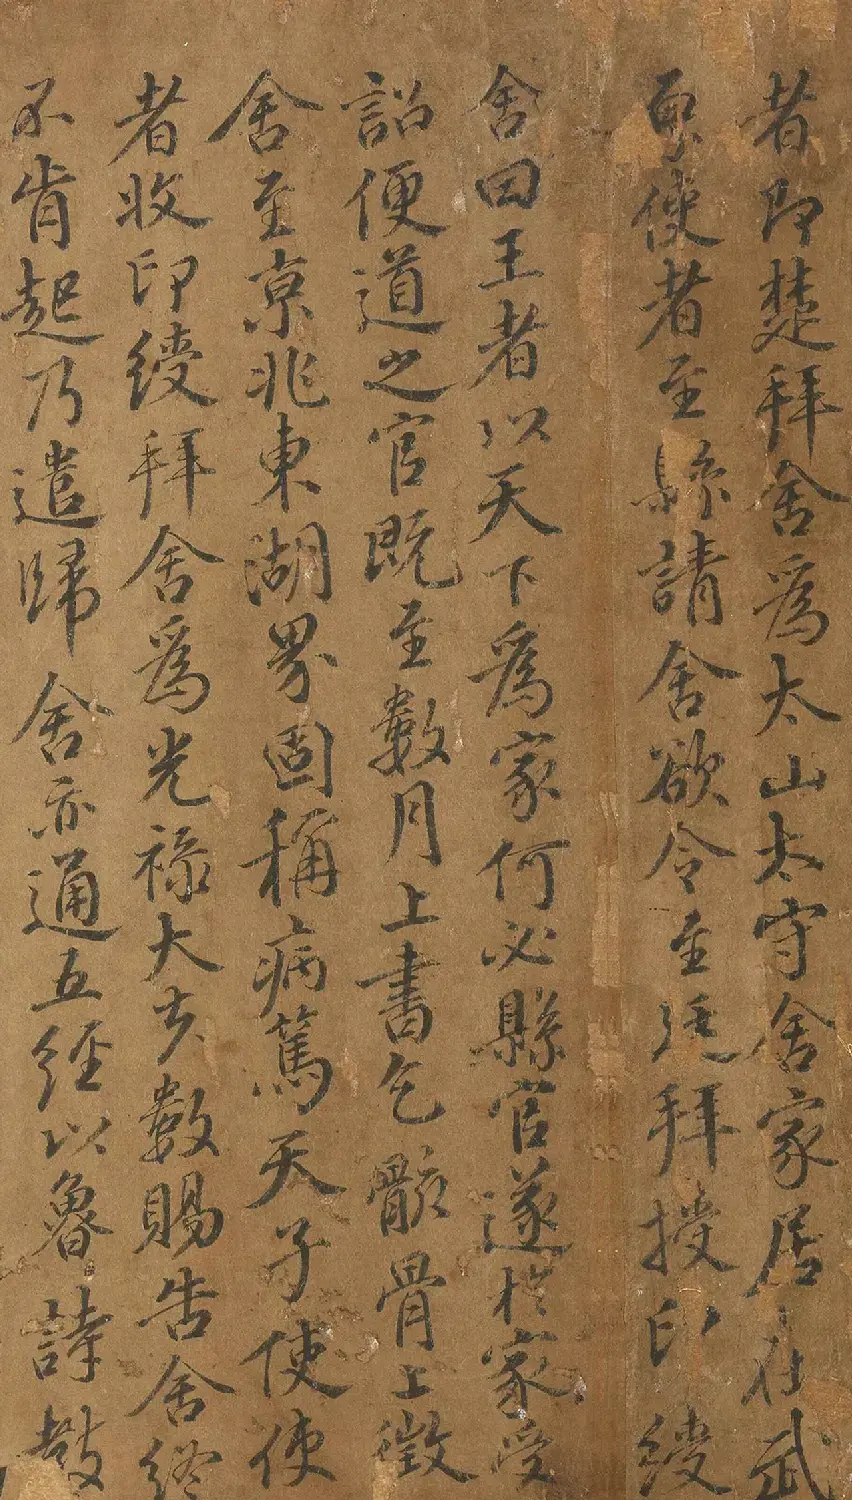 者即楚拜舍爲太山太守舍家居在武
原使者至縣請舍欲令至廷拜授印綬
舍曰王者以天下爲家何必縣官遂於家受
詔便道之官既至數月上書乞骸骨上徵
舍至京兆東湖界固稱病篤天子使使
者收印綬拜舍爲光祿大夫數賜告舍終
不肯起乃遣歸舍亦通五經以魯詩教